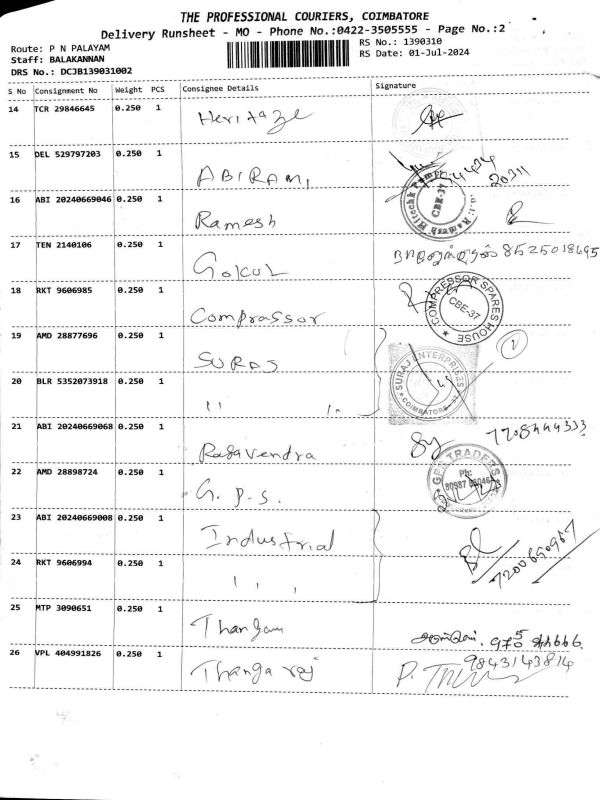 THE PROFESSIONAL COURIERS, COIMBATORE
Delivery Runsheet - MO - Phone No.:0422-3505555 - Page No.:2
Route: P N PALAYAM
RS No.: 1390310
Staff: BALAKANNAN
RS Date: 01-Jul-2024
DRS No.: DCJB139031002
S No Consignment No Weight PCS Consignee Details Signature
14 TCR 29846645 0.250 1 Heritage
15 DEL 529797203 0.250 1 ABIRAMI
16 ABI 20240669046 0.250 1 Ramesh CBE-37
17 TEN 2140106 0.250 1 Gokul 8525018695
18 RKT 9606985 0.250 1 Comprassor COMPRESSOR SPARES HOUSE CBE-37
19 AMD 28877696 0.250 1 SURAJ SURAJ ENTERPRISES COIMBATORE
20 BLR 5352073918 0.250 1 " "
21 ABI 20240669068 0.250 1 Ragavendra
22 AMD 28898724 0.250 1 G.P.S. TRADERS Ph:
23 ABI 20240669008 0.250 1 Industrial
24 RKT 9606994 0.250 1 " " 7200650967
25 MTP 3090651 0.250 1 Thangam
26 VPL 404991826 0.250 1 Thanga raj 9843143814